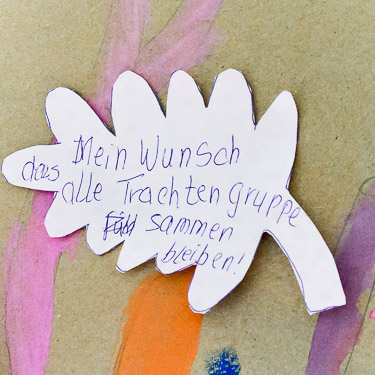 Mein Wunsch
dass alle Trachtengruppe
sammen
bleiben!